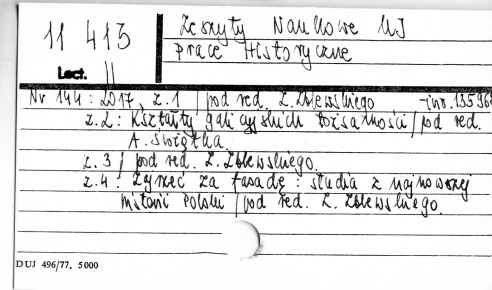 Zeszyty Naukowe UJ
11 413 Prace Historyczne
Lect.
Nr 144 : 2017, z. 1 / pod red. Z. Zblewskiego - inw. 135968
z. 2 : Kształty galicyjskich tożsamości / pod red.
A. Świątka.
z. 3 / pod red. Z. Zblewskiego.
z. 4 : Zyrzeć za fasadę : studia z najnowszej
historii Polski / pod red. Z. Zblewskiego.
DUJ 496/77. 5000